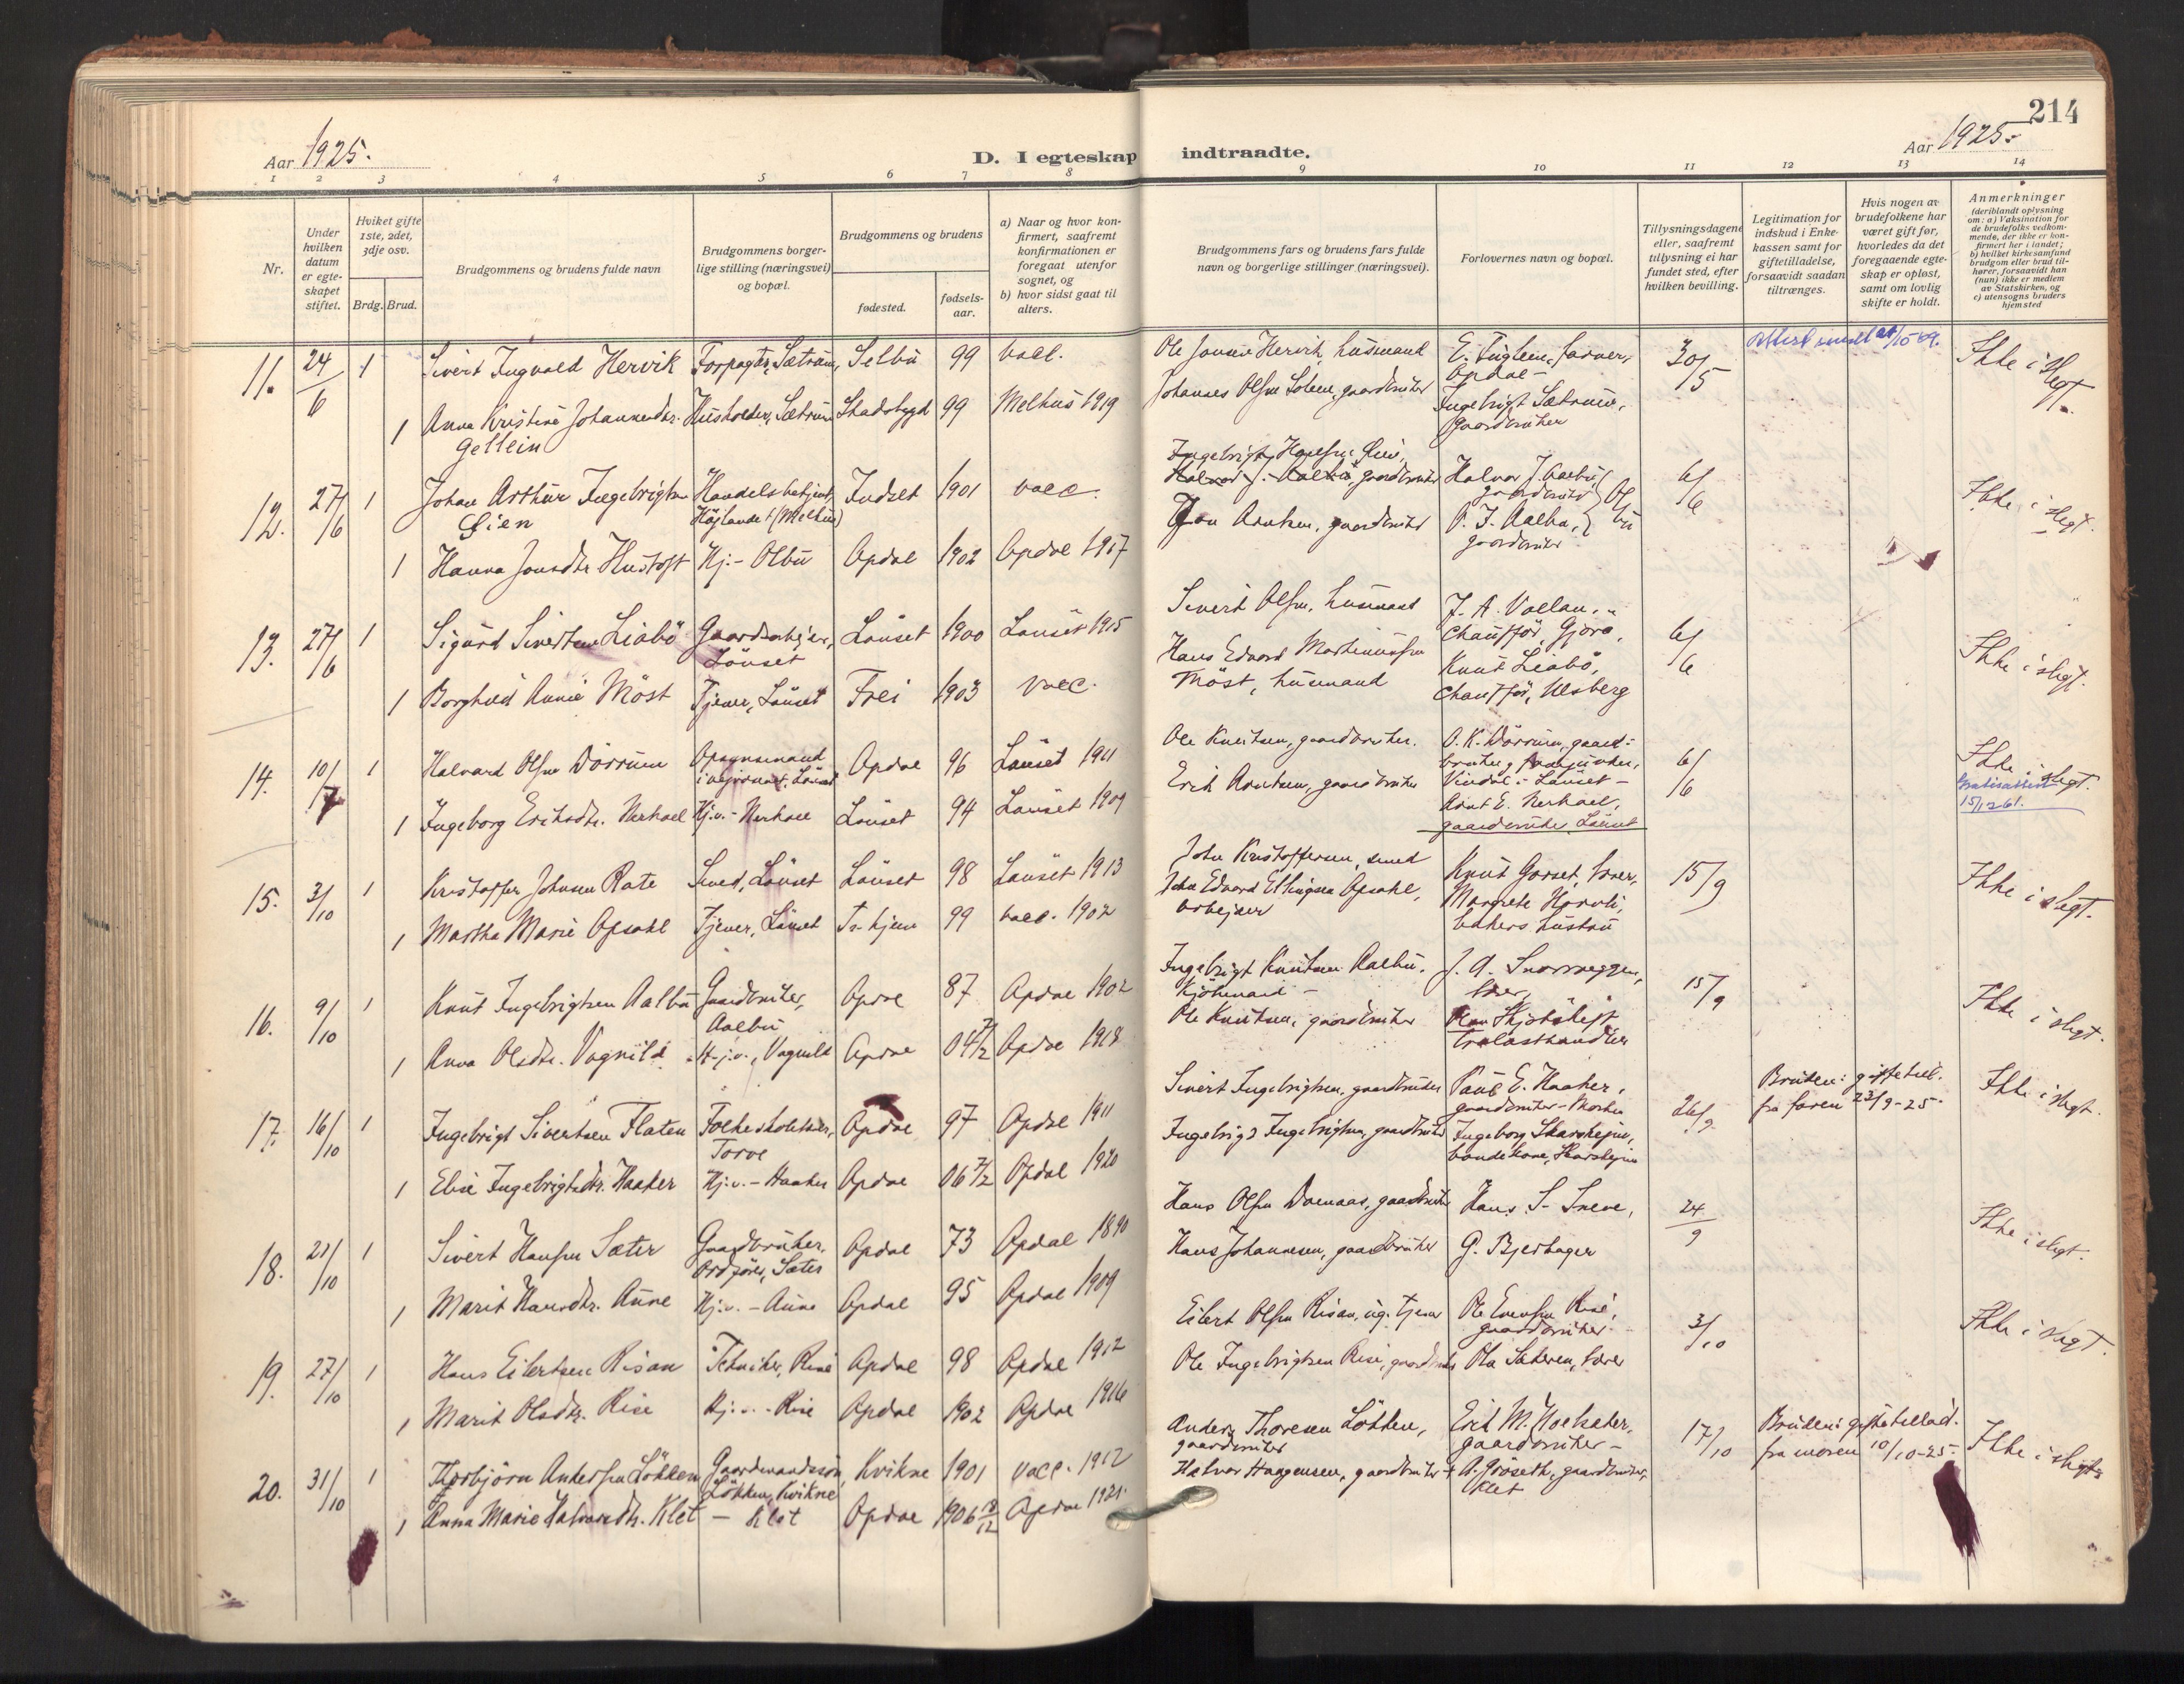 214
Aar 1925.
D. I egteskap indtraadte.
Aar 1925.
1 2 3 4 5 6 7 8 9 10 11 12 13 14
Nr.
Under hvilken datum er egteskapet stiftet.
Hviket gifte 1ste, 2det, 3dje osv.
Brdg. Brud.
Brudgommens og brudens fulde navn
Brudgommens borgerlige stilling (næringsvei) og bopæl.
Brudgommens og brudens
fødested.
fødselsaar.
a) Naar og hvor konfirmert, saafremt konfirmationen er foregaat utenfor sognet, og
b) hvor sidst gaat til alters.
Brudgommens fars og brudens fars fulde navn og borgerlige stillinger (næringsvei).
Forlovernes navn og bopæl.
Tillysningsdagene eller, saafremt tillysning ei har fundet sted, efter hvilken bevilling.
Legitimation for indskud i Enkekassen samt for giftetilladelse, forsaavidt saadan tiltrænges.
Hvis nogen av brudefolkene har været gift før, hvorledes da det foregaaende egteskap er opløst, samt om lovlig skifte er holdt.
Anmerkninger (deriblandt oplysning om: a) Vaksination for de brudefolks vedkommende, der ikke er konfirmert her i landet; b) hvilket kirkesamfund brudgom eller brud tilhører, forsaavidt han (hun) ikke er medlem av Statskirken, og c) utensogns bruders hjemsted
11. 24/6 1 Sivert Ingvald Hervik Forpagter, Sætrum, Selbu 99 vacc. Ole Hervik, husmand E. Fuglem, farver, Opdal - 30/5 Ikke i slegt.
1 Anna Kristine Johannesdtr. Gellein Husholder, Sætrum Stadsbygd 99 Melhus 1919 Johannes Olsen gaardbruker Ingebrigt Sætrum, Gaardbruker
12. 27/6 1 Johan Arthur Ingebrigtsen Lien Handelsbetjent, (Melhus) Indset 1901 vacc. Ingebrigt Hansen Lien, gaardbruker Halvor J. Aalbu, gaardbruker 6/6 Ikke i slegt.
1 Hanna Jonsdtr. Hustoft Hj. - Olbu Opdal 1902 Opdal 1917 Jon Arntsen, gaardbruker O. J. Aalbu, gaardbruker
13. 27/6 1 Sigurd Sivertsen Liabö Gaardarbejder, Lönset Lönset 1900 Lönset 1915 Sivert Olsen, husmand J. A. Vollan, Chauffør, Gjøra, 6/6 Ikke i slegt.
1 Borghild Annie Möst Tjener, Lönset Frei 1903 vacc. Hans Edvard Martinussen Möst, husmand Knut Liabö, Chauffør, Ulsberg
14. 10/7 1 Halvard Olsen Dörrum Opsynsmand i vejvesenet, Lönset Opdal 96 Lönset 1911 Ole Knutsen, gaardbruker. O. K. Dörrum, gaardbruker Vindal - Lönset - 6/6 Ikke i slegt.
1 Ingeborg Eriksdtr. Nerhoel Hj.v. - Nerhoel Lönset 94 Lönset 1909 Erik Arntsen, gaardbruker Arnt E. Nerhoel, gaardbruker Lönset
15. 3/10 1 Kristoffer Johnsen Rate Smed, Lönset Lönset 98 Lönset 1913 John Kristoffersen, smed Knut Gorset, lærer, 15/9 Ikke i slegt.
1 Martha Marie Opsahl Tjener, Lönset Tr.hjem 99 vacc. 1902 John Edvard Ellingsen Opsahl, arbejder Margrete bakers hustru
16. 9/10 1 Knut Ingebrigtsen Aalbu Gaardbruker, Aalbu Opdal 87 Opdal 1902 Ingebrigt Knutsen Aalbu, Kjöbmand - J. A. Snøvæggen, lærer, 15/9 Ikke i slegt.
1 Anna Olsdtr. Vognild Hj.v., Vognild Opdal 04 Opdal 1918 Ole Knutsen, gaardbruker Olav Skjötskift trælasthandler
17. 16/10 1 Ingebrigt Sivertsen Flaten Folkeskolelærer, Torve Opdal 97 Opdal 1911 Sivert Ingebrigtsen, gaardbruker Paul E. Haaker, gaardbruker 26/9 Bruden: giftetil. fra faren 23/9-25. Ikke i slegt.
1 Elise Ingebrigtsdtr. Haaker Hj.v. - Haaker Opdal 06 Opdal 1920 Ingebrigt Ingebrigtsen, gaardbruker Ingeborg Skarsheim, bondekone, Skarsheim
18. 21/10 1 Sivert Hansen Sæter Gaardbruker, Ordfører, Sæter Opdal 73 Opdal 1890 Hans Olsen Dalenaas, gaardbruker Hans S. Sneve, 24/9 Ikke i slegt.
1 Marit Hansdtr. Aune Hj.v. - Aune Opdal 95 Opdal 1909 Hans Johannesen, gaardbruker G. Bjerkager
19. 27/10 1 Hans Eilertsen Risan Tekniker, Rise Opdal 98 Opdal 1912 Eilert Olsen Risan, Ole Evensen Rise, gaardbruker 3/10 Ikke i slegt.
1 Marit Olsdtr. Rise Hj.v. - Rise Opdal 1902 Opdal 1916 Ole Ingebrigtsen Rise, gaardbruker Ola Sæteren, lærer
20. 31/10 1 Thorbjörn Andersen Lökken Gaardmandssön, Lökken, Kvikne Kvikne 1901 vacc. 1912 Anders Thoresen Lökken, gaardbruker Erik M. Hoelsæter, gaardbruker - 17/10 Bruden: giftetillad. fra moren 10/10-25. Ikke i slegt
1 Anna Marie Halvorsdtr. Klet - Klet Opdal 1906 Opdal 1921. Halvor Haagensen, gaardbruker A. Gröseth, gaardbruker, Klet